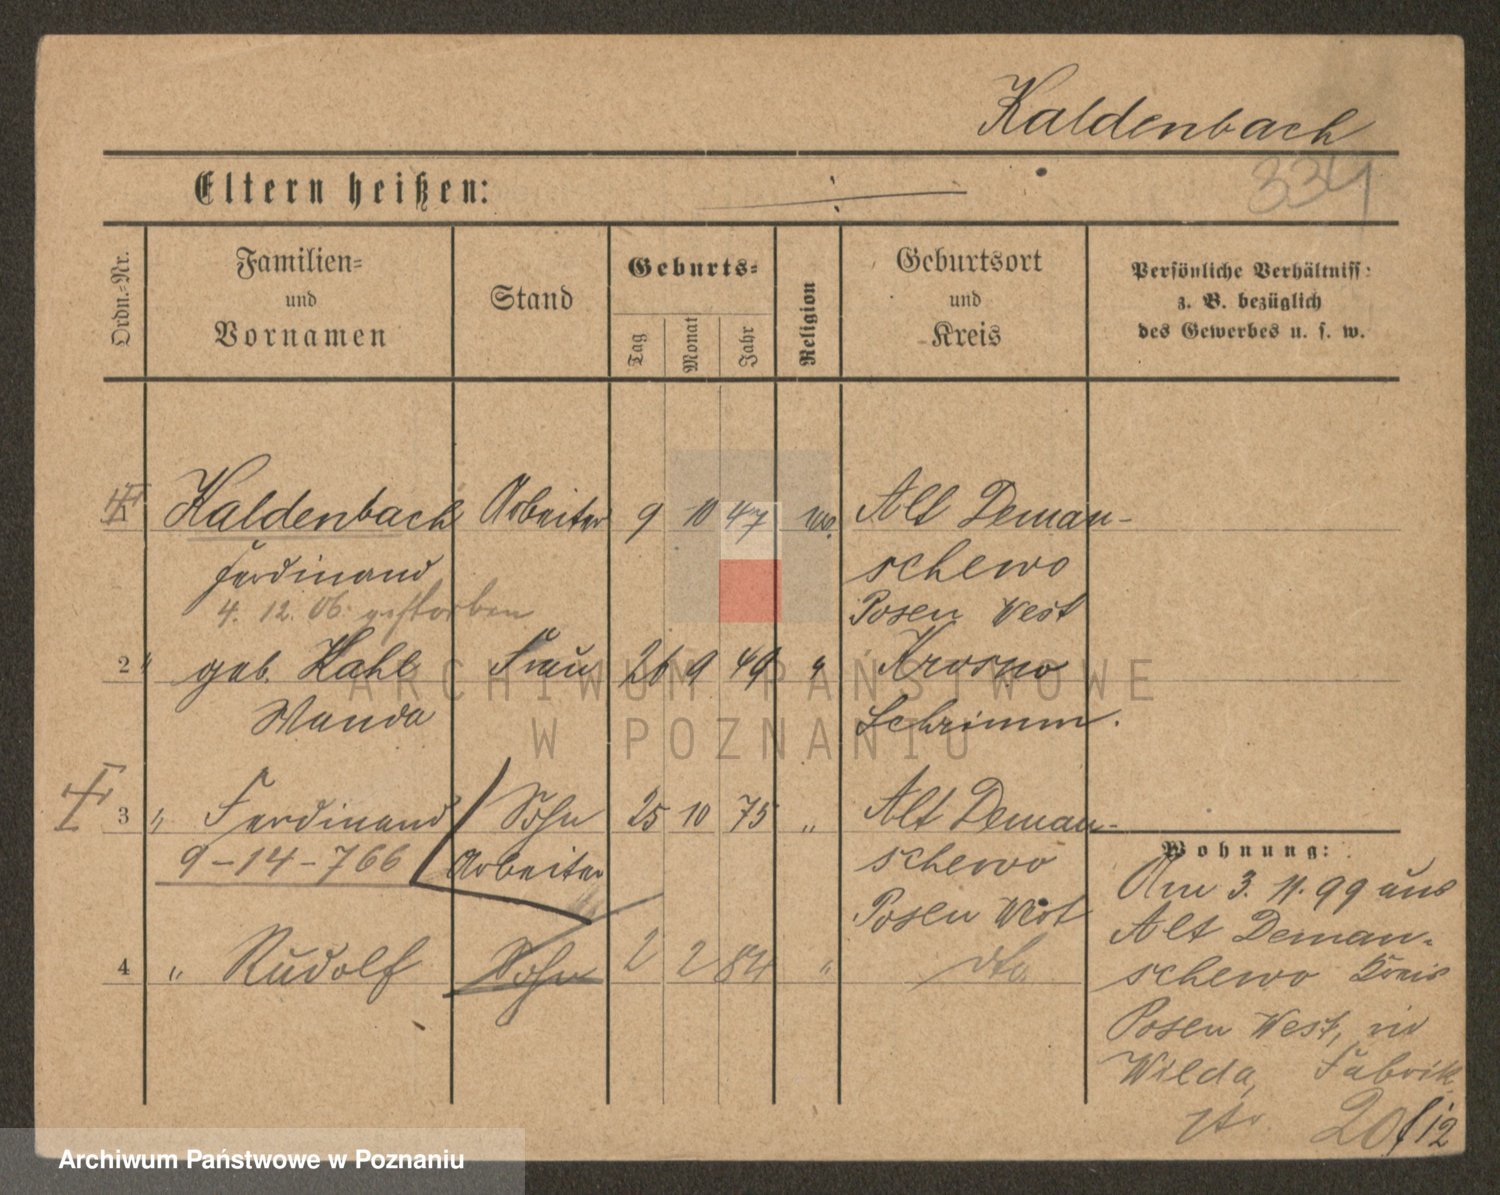 Kaldenbach
334
Eltern heißen:
Ordn.-Nr.
Familien-
und
Vornamen
Stand
Geburts-
Tag
Monat
Jahr
Religion
Geburtsort
und
Kreis
Persönliche Verhältniss:
z. B. bezüglich
des Gewerbes u. s. w.
Kaldenbach Arbeiter 9 10 47 Alt Deman-
Ferdinand schewo
4. 12. 06. gestorben Posen West
2 " geb. Hahl Frau 26 9 49 " Krosno
Wanda Schrimm.
3 " Ferdinand Sohn 25 10 75 " Alt Deman-
9-14-766 Arbeiter schewo
Posen West
4 " Rudolf Sohn 2 2 84 " dto.
Wohnung:
Am 3. 11. 99 aus
Alt Deman-
schewo Kreis
Posen West, in
Wilda, Fabrik
str. 20 f 12
ARCHIWUM PAŃSTWOWE
W POZNANIU
Archiwum Państwowe w Poznaniu